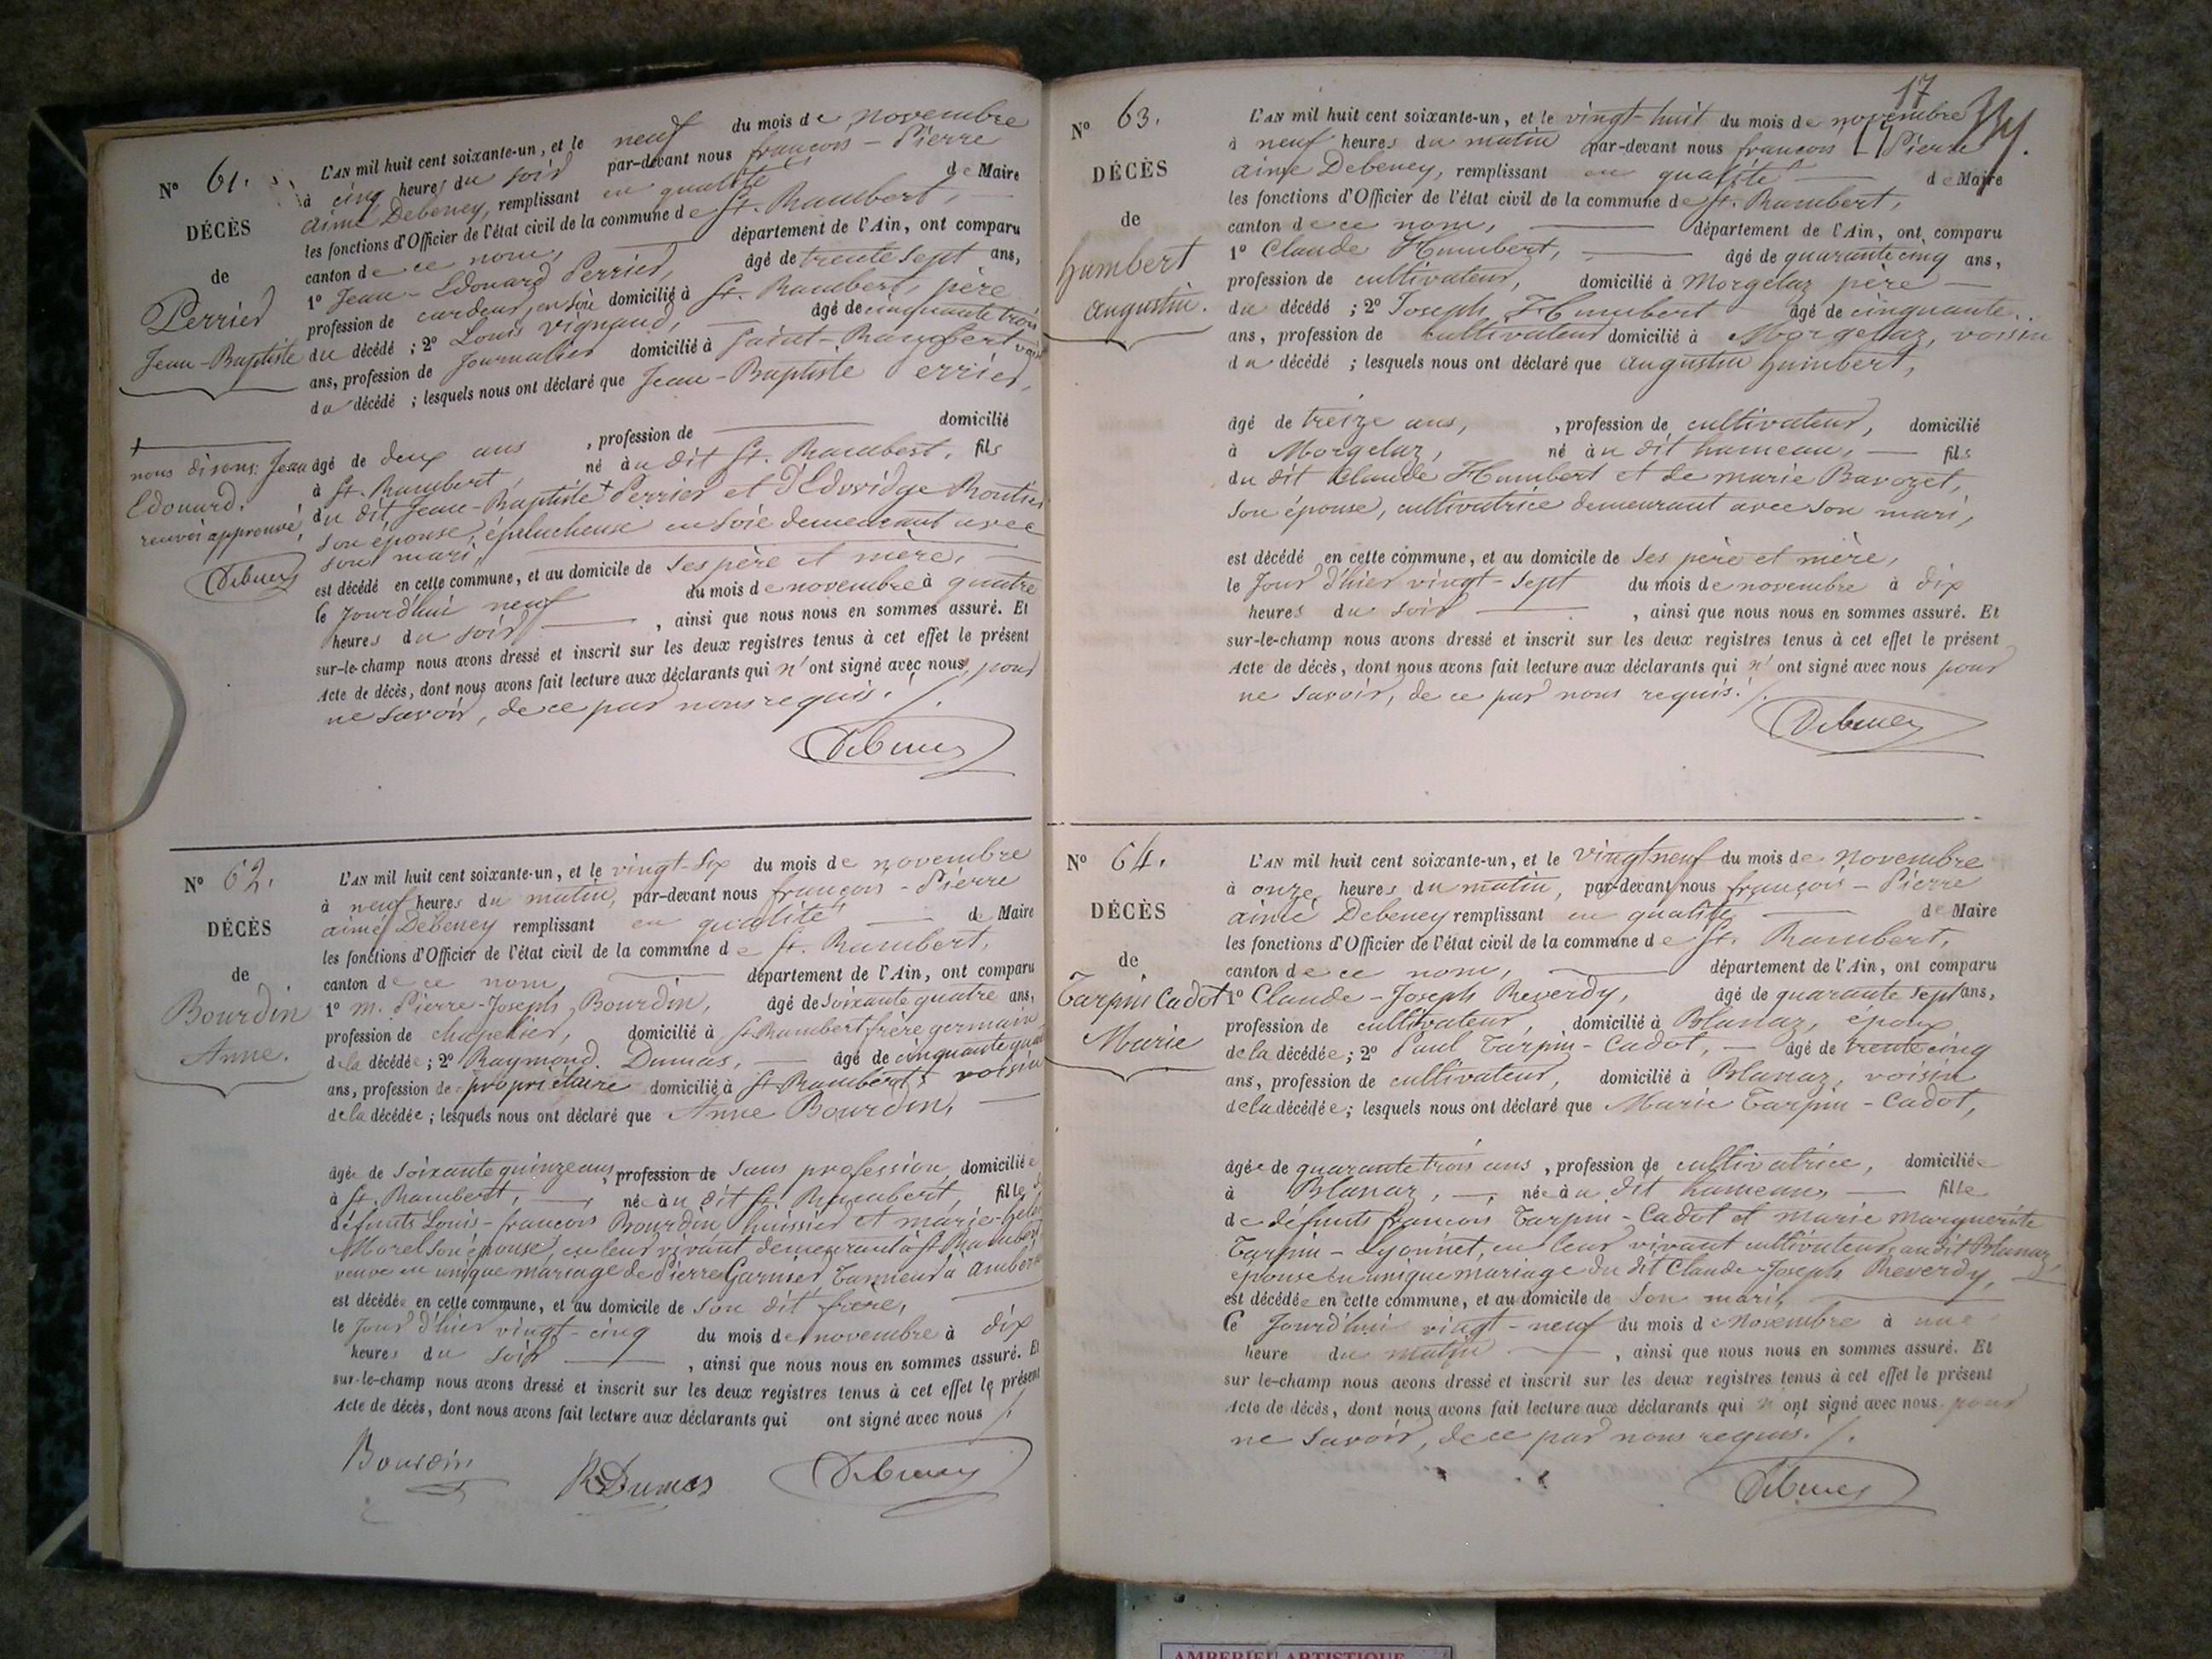 N° 61.
DÉCÈS
de
Perrier
Jean-Baptiste
nous disons: Jean
Edouard.
renvoi approuvé,
Debeney
L'AN mil huit cent soixante-un, et le neuf du mois de novembre
à cinq heures du soir par-devant nous françois-Pierre
aimé Debeney, remplissant en qualité de Maire
les fonctions d'Officier de l'état civil de la commune de St. Rambert,
canton de ce nom, département de l'Ain, ont comparu
1° Jean-Edouard Perrier, âgé de trente sept ans,
profession de cardeur en soie domicilié à St. Rambert, père
du décédé ; 2° Louis Vignand, âgé de cinquante trois
ans, profession de Journalier domicilié à Saint-Rambert voisin
du décédé ; lesquels nous ont déclaré que Jean-Baptiste Perrier,
âgé de deux ans , profession de domicilié
à St. Rambert, né au dit St. Rambert, fils
du dit Jean-Baptiste + Perrier et d'Edwidge Routier
son épouse, éplucheuse en soie demeurant avec
son mari,
est décédé en cette commune, et au domicile de ses père et mère,
ce Jourd'hui neuf du mois de novembre à quatre
heures du soir , ainsi que nous nous en sommes assuré. Et
sur-le-champ nous avons dressé et inscrit sur les deux registres tenus à cet effet le présent
Acte de décès, dont nous avons fait lecture aux déclarants qui n'ont signé avec nous pour
ne savoir, de ce par nous requis. /.
Debeney
N° 62.
DÉCÈS
de
Bourdin
Anne.
L'AN mil huit cent soixante-un, et le vingt-six du mois de novembre
à neuf heures du matin, par-devant nous françois-Pierre
aimé Debeney remplissant en qualité de Maire
les fonctions d'Officier de l'état civil de la commune de St. Rambert,
canton de ce nom département de l'Ain, ont comparu
1° M. Pierre-Joseph Bourdin, âgé de soixante quatre ans,
profession de chapelier, domicilié à St. Rambert frère germain
de la décédée ; 2° Raymond Dumas, âgé de cinquante quatre
ans, profession de propriétaire domicilié à St. Rambert, voisin
de la décédée ; lesquels nous ont déclaré que Anne Bourdin,
âgée de soixante quinze ans, profession de sans profession, domiciliée
à St. Rambert, née au dit St. Rambert, fille de
défunts Louis-françois Bourdin huissier et marie-
Morel son épouse, en leur vivant demeurant à St. Rambert
veuve en unique mariage de Pierre Garnier Tanneur à ambérieu
est décédée en cette commune, et au domicile de son dit frère,
le Jour d'hier vingt-cinq du mois de novembre à dix
heures du soir , ainsi que nous nous en sommes assuré. Et
sur-le-champ nous avons dressé et inscrit sur les deux registres tenus à cet effet le présent
Acte de décès, dont nous avons fait lecture aux déclarants qui ont signé avec nous /.
Bourdin RDumas Debeney
17
N° 63.
DÉCÈS
de
humbert
augustin.
L'AN mil huit cent soixante-un, et le vingt-huit du mois de novembre
à neuf heures du matin par-devant nous françois-Pierre
aimé Debeney, remplissant en qualité de Maire
les fonctions d'Officier de l'état civil de la commune de St. Rambert,
canton de ce nom, département de l'Ain, ont comparu
1° Claude Humbert, âgé de quarante cinq ans,
profession de cultivateur, domicilié à Morgelaz père
du décédé ; 2° Joseph Humbert âgé de cinquante
ans, profession de cultivateur domicilié à Morgelaz, voisin
du décédé ; lesquels nous ont déclaré que augustin humbert,
âgé de treize ans, , profession de cultivateur, domicilié
à Morgelaz, né au dit hameau, fils
du dit Claude Humbert et de marie Bavozet,
son épouse, cultivatrice demeurant avec son mari,
est décédé en cette commune, et au domicile de ses père et mère,
le Jour d'hier vingt-sept du mois de novembre à dix
heures du soir , ainsi que nous nous en sommes assuré. Et
sur-le-champ nous avons dressé et inscrit sur les deux registres tenus à cet effet le présent
Acte de décès, dont nous avons fait lecture aux déclarants qui n'ont signé avec nous pour
ne savoir, de ce par nous requis. /.
Debeney
N° 64.
DÉCÈS
de
Tarpin Cadot
Marie
L'AN mil huit cent soixante-un, et le vingt neuf du mois de novembre
à onze heures du matin, par-devant nous françois-Pierre
aimé Debeney remplissant en qualité de Maire
les fonctions d'Officier de l'état civil de la commune de St. Rambert,
canton de ce nom, département de l'Ain, ont comparu
1° Claude-Joseph Reverdy, âgé de quarante sept ans,
profession de cultivateur, domicilié à Blanaz, époux
de la décédée ; 2° Paul Tarpin-Cadot, âgé de trente cinq
ans, profession de cultivateur, domicilié à Blanaz, voisin
de la décédée ; lesquels nous ont déclaré que Marie Tarpin-Cadot,
âgée de quarante trois ans , profession de cultivatrice, domiciliée
à Blanaz, née au dit hameau, fille
de défunts françois Tarpin-Cadot et marie marguerite
Tarpin-Lyonnet, en leur vivant cultivateurs au dit Blanaz,
épouse en unique mariage du dit Claude-Joseph Reverdy,
est décédée en cette commune, et au domicile de son mari,
Ce Jourd'hui vingt-neuf du mois de Novembre à une
heure du matin , ainsi que nous nous en sommes assuré. Et
sur le-champ nous avons dressé et inscrit sur les deux registres tenus à cet effet le présent
Acte de décès, dont nous avons fait lecture aux déclarants qui n'ont signé avec nous pour
ne savoir, de ce par nous requis. /.
Debeney
AMBERIEU ARTISTIQUE